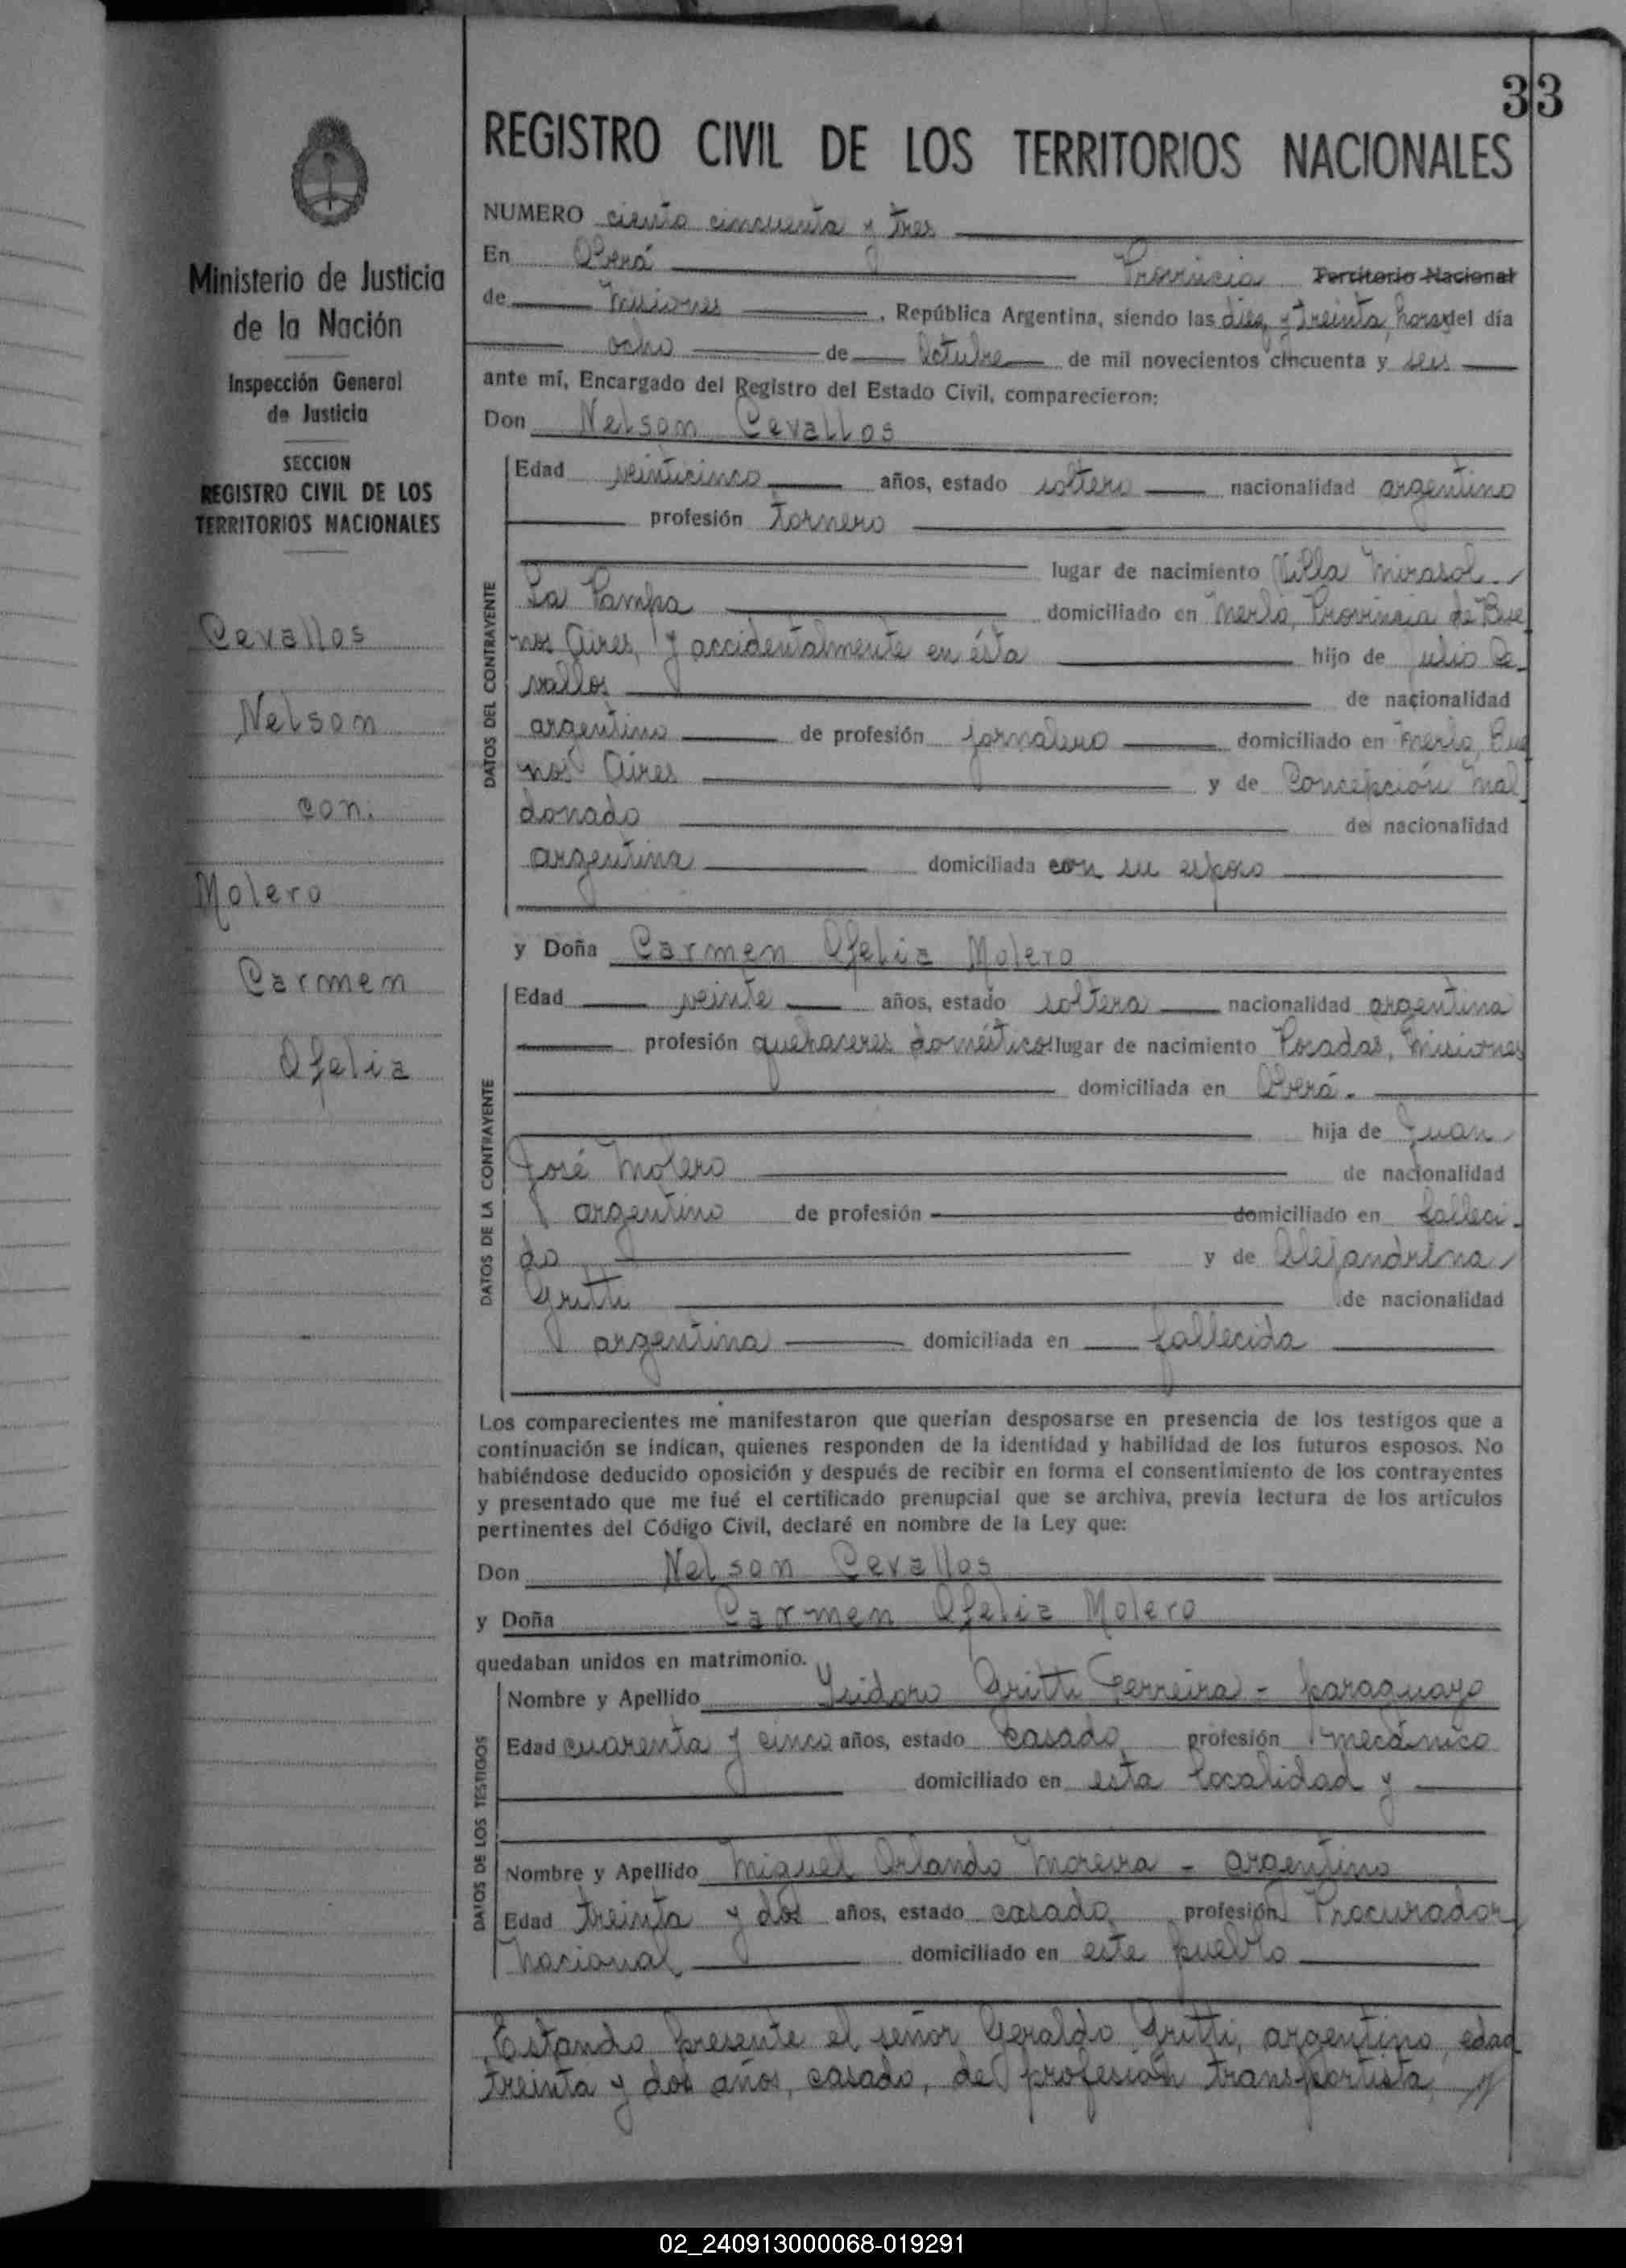 33
REGISTRO CIVIL DE LOS TERRITORIOS NACIONALES
Ministerio de Justicia
de la Nación
Inspección General
de Justicia
SECCION
REGISTRO CIVIL DE LOS
TERRITORIOS NACIONALES
Cevallos
Nelson
con.
Molero
Carmen
Ofelia
NUMERO ciento cincuenta y tres
En Oberá Provincia Territorio Nacional
de Misiones, República Argentina, siendo las diez y treinta horas del día
ocho de Octubre de mil novecientos cincuenta y seis
ante mí, Encargado del Registro del Estado Civil, comparecieron:
Don Nelson Cevallos
DATOS DEL CONTRAYENTE
Edad veinticinco años, estado soltero nacionalidad argentino
profesión tornero
lugar de nacimiento Villa Mirasol
La Pampa domiciliado en Merlo, Provincia de Bue
nos Aires, y accidentalmente en ésta hijo de Julio Ce
vallos de nacionalidad
argentino de profesión jornalero domiciliado en Merlo, Bue
nos Aires y de Concepción Mal
donado de nacionalidad
argentina domiciliada con su esposo
y Doña Carmen Ofelia Molero
DATOS DE LA CONTRAYENTE
Edad veinte años, estado soltera nacionalidad argentina
profesión quehaceres domésticos lugar de nacimiento Posadas, Misiones
domiciliada en Oberá.
hija de Juan
José Molero de nacionalidad
argentino de profesión domiciliado en falleci
do y de Alejandrina
Gritti de nacionalidad
argentina domiciliada en fallecida
Los comparecientes me manifestaron que querían desposarse en presencia de los testigos que a
continuación se indican, quienes responden de la identidad y habilidad de los futuros esposos. No
habiéndose deducido oposición y después de recibir en forma el consentimiento de los contrayentes
y presentado que me fué el certificado prenupcial que se archiva, previa lectura de los artículos
pertinentes del Código Civil, declaré en nombre de la Ley que:
Don Nelson Cevallos
y Doña Carmen Ofelia Molero
quedaban unidos en matrimonio.
DATOS DE LOS TESTIGOS
Nombre y Apellido Ysidoro Gritti Ferreira - paraguayo
Edad cuarenta y cinco años, estado casado profesión mecánico
domiciliado en esta localidad y
Nombre y Apellido Miguel Orlando Moreira - argentino
Edad treinta y dos años, estado casado profesión Procurador
Nacional domiciliado en este pueblo
Estando presente el señor Geraldo Gritti, argentino, edad
treinta y dos años, casado, de profesión transportista, y
02_240913000068-019291